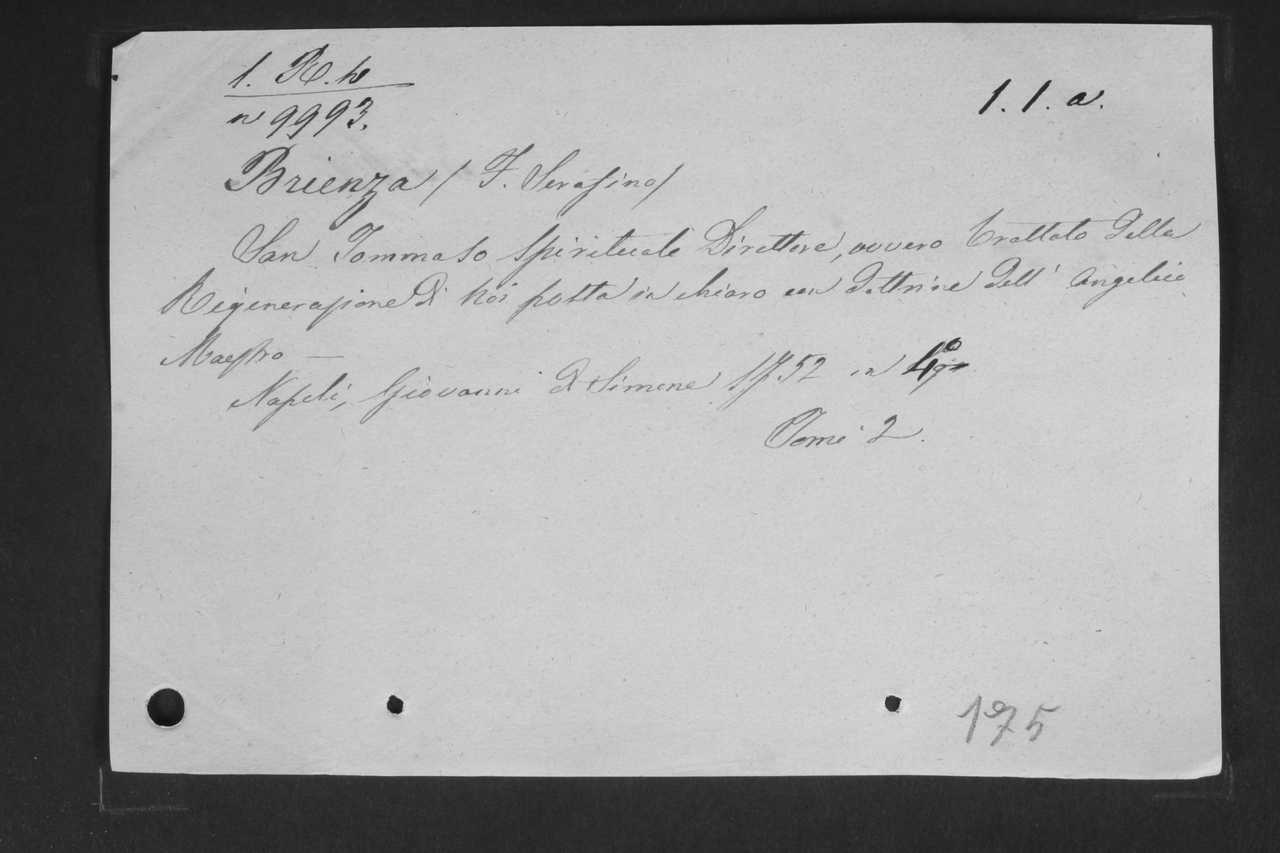 1. R. h
n 9993.
1. 1. a.
Brienza / F. Serafino /
San Tommaso Spirituale Direttore, ovvero Trattato della
Rigenerazione di Noi posta in chiaro con dottrine dell' Angelico
Maestro —
Napoli, Giovanni di Simone 1752 in 4º
Tomi 2.
175